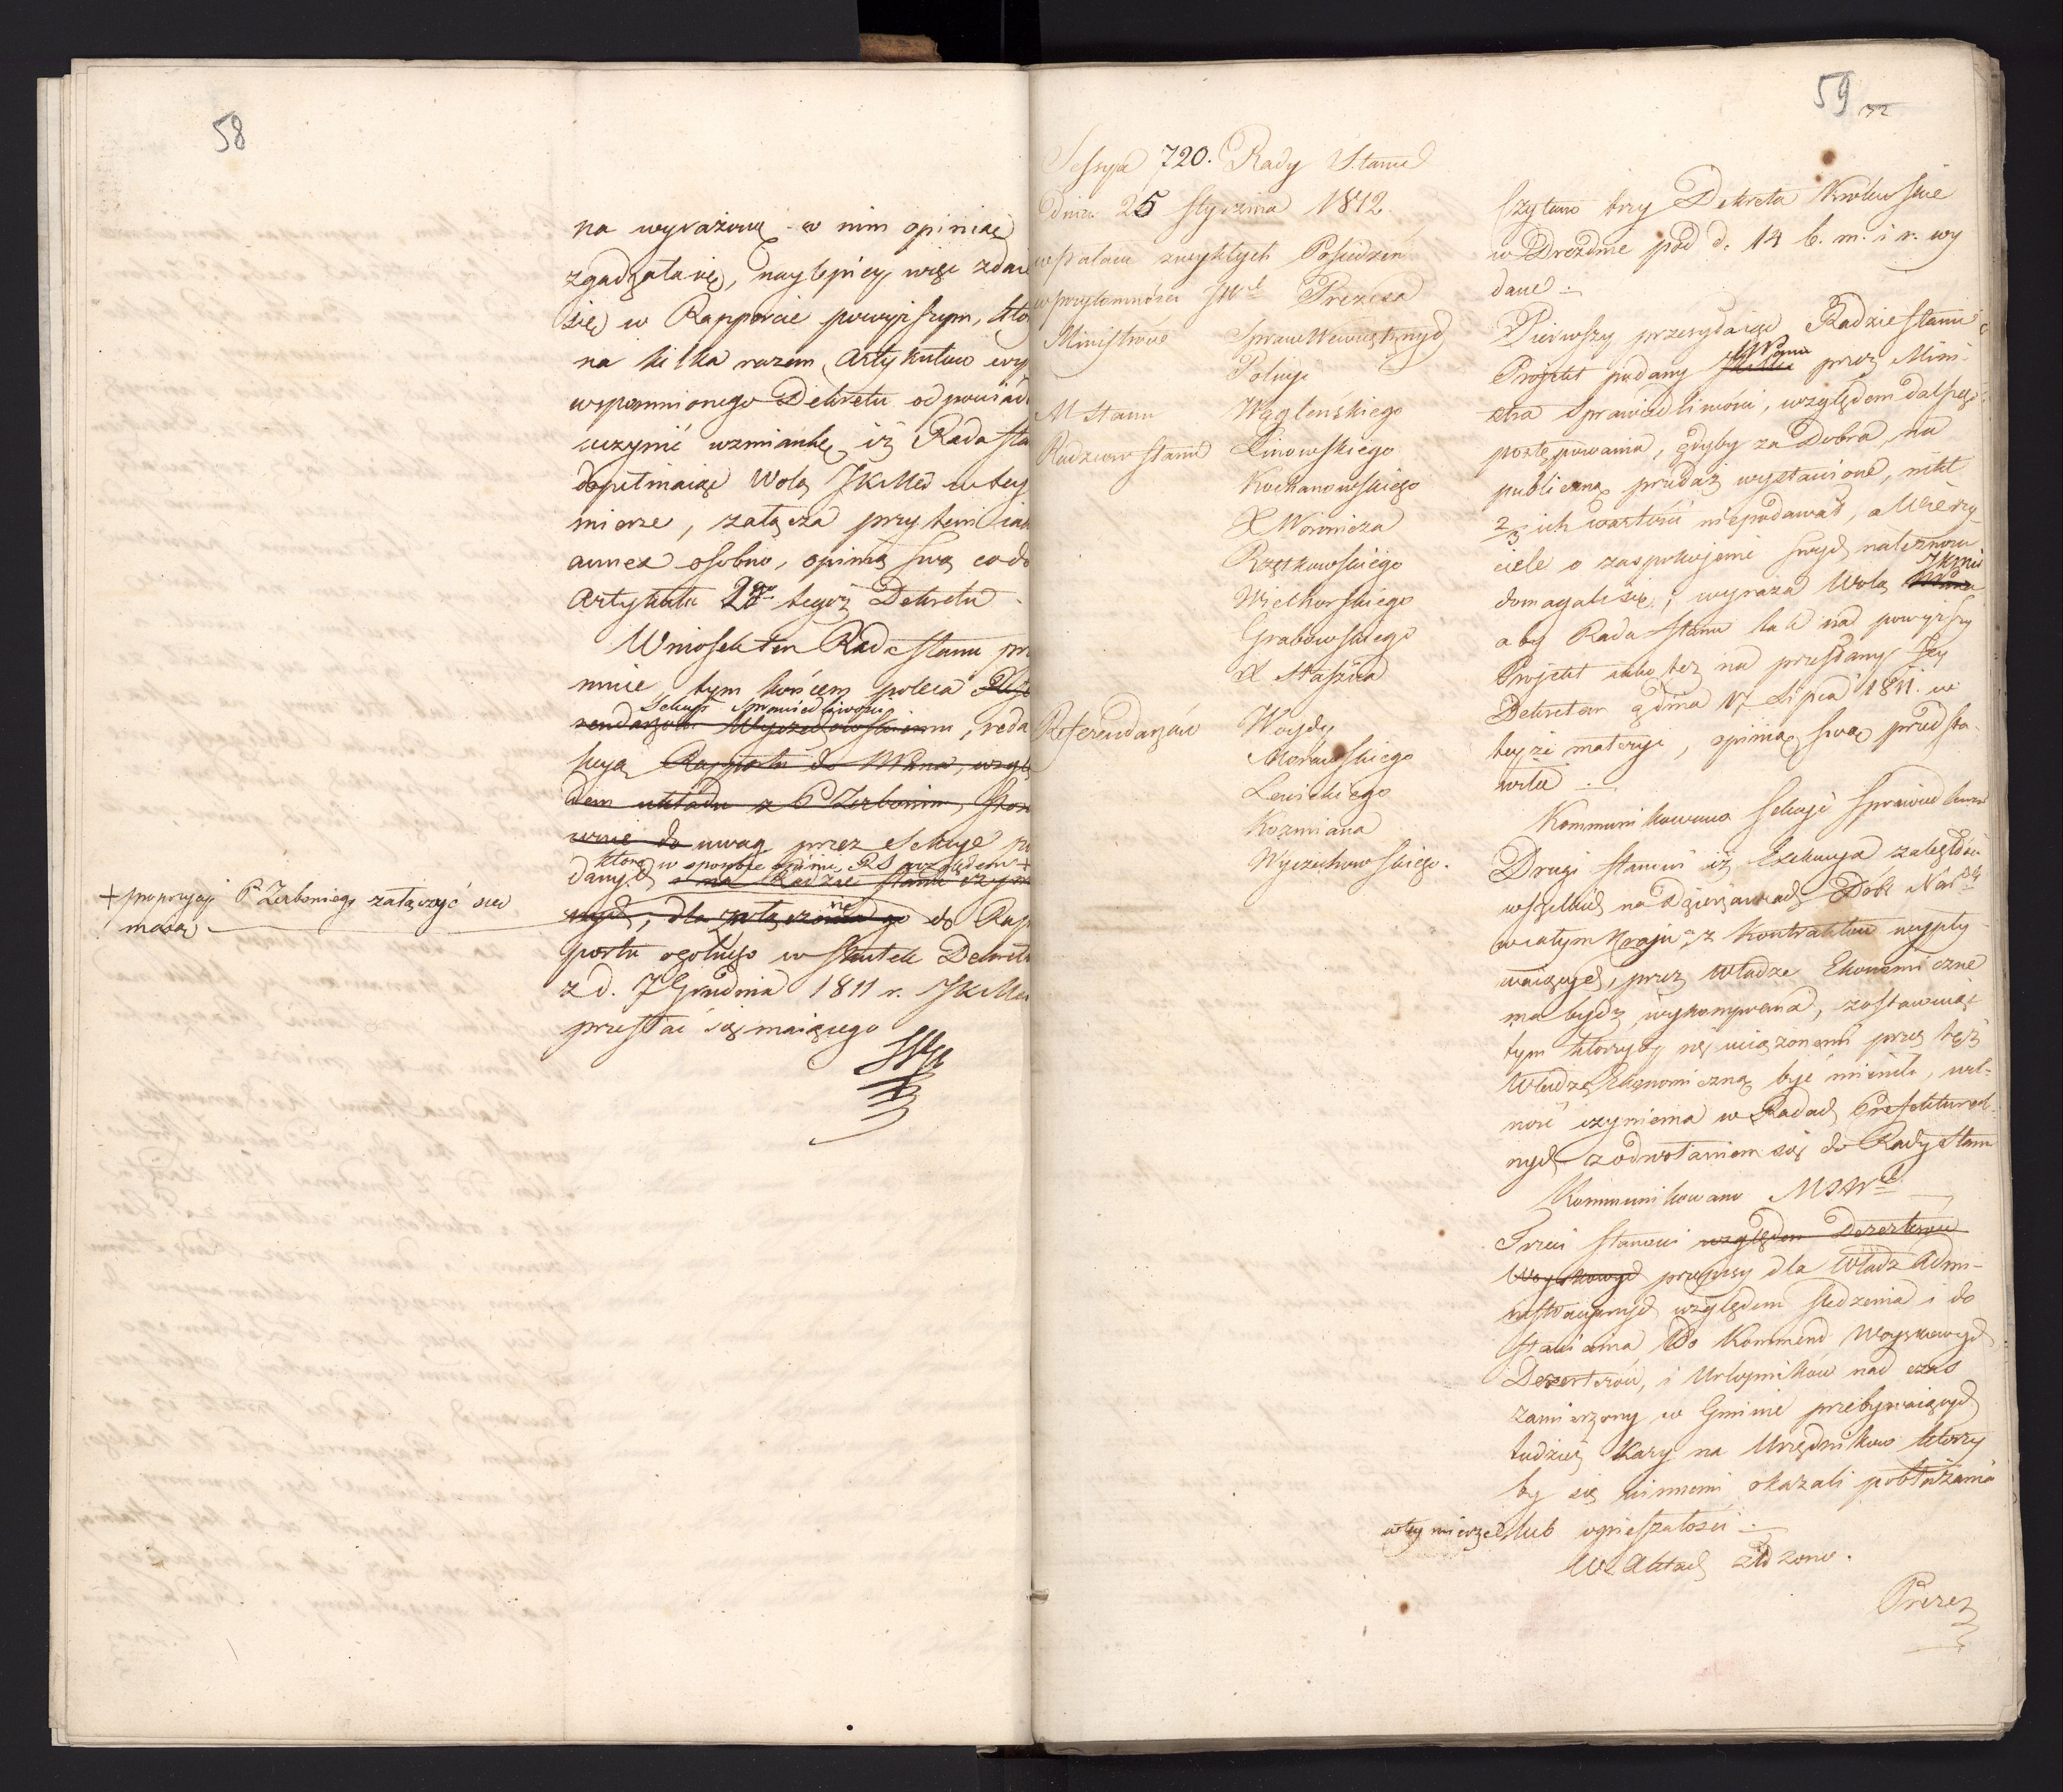 58
na wyrażoną w nim opinią
zgadzała się, naylepiey więc zdaie
się w Rapporcie powyższym, kto
na kilka razem Artykułów wy
wspomnionego Dekretu odpowiad
uczynić wzmiankę, iż Rada Sta
dopełniaiąc Wolą JKMci w tey
mierze, załącza przy tem iak
annex osobno, opinią swą co do
Artykułu 2go tegoż Dekretu.
Wniosek ten Rada Stanu prz
mnie, tym końcem poleca Refe
Sekcyi Sprawiedliwości
rendarzowi Wyczechowskiemu, reda
kcyą Rapportu do NPana, wzglę
dem układu z P Zerbonim, stoso
wnie do uwag przez Sekcyę po
które w sposobie opinii RS względem +
danych i na Radzie Stanu czyta
nych, dla załączenia go do Rap
+ propozycyi P Zerboniego załączyć się
maią
portu ogólnego w skutek Dekretu
z d. 7 Grudnia 1811 r. JKMci
przesłać się maiącego
59
32
Sessya 720. Rady Stanu
Dnia 25 Stycznia 1812.
w Pałacu zwykłych Posiedzeń
w przytomności JWo Prezesa
Ministrów Spraw Wewnętrznych
Policyi
M Stanu Węgleńskiego
Radzców Stanu Linowskiego
Kochanowskiego
X Woronicza
Rętkowskiego
Wielhorskiego
Grabowskiego
X Staszica
Referendarzów Woydy
Morawskiego
Lewickiego
Kozmiana
Wyczechowskiego.
Czytano trzy Dekreta Królewskie
w Dreznie pod d. 14 b. m. i r. wy
dane.
Pierwszy przesyłaiąc Radzie Stanu
Proiekt podany NPanu przez Mini-
stra Sprawiedliwości, względem dalszego
postępowania, gdyby za Dobra, na
publiczną przedaż wystawione, nikt
2/3 ich wartości niepodawał, a Wierzy-
ciele o zaspokoienie swych należności
JKMci
domagali się; wyraża Wolą NPana
aby Rada Stanu tak nad powyższy
Proiekt iako też nad przesłany Jey
Dekretem z dnia 17 Lipca 1811. w
teyże materyi, opinią swą przedsta-
wiła.
Kommunikowano Sekcyi Sprawiedliwości
Drugi stanowi iż Exekucya zaległości
wszelkich na Dzierżawcach Dóbr Narod.
w całym kraiu, z kontraktów wypły-
waiących, przez Władze Ekonomiczne
ma bydź wykonywana, zostawuiąc
tym którzyby się uciążonemi przez też
Władzę Ekonomiczną być mienili, wol-
ność czynienia w Radach Prefektural-
nych z odwołaniem się do Rady Stanu
Kommunikowano MSWe
Trzeci stanowi względem Dezerterów
Woyskowych przepisy dla Władz Admi-
nistracyinych względem śledzenia i do
stawiania do Kommend Woyskowych
Dezerterów, i Urlopników nad czas
zamierzony w Gminie przebywaiących
tudzież Kary na Urzędników którzy
by się winnemi okazali pobłażania
w tey mierze lub opieszałości.
W Aktach złożono.
Prezes